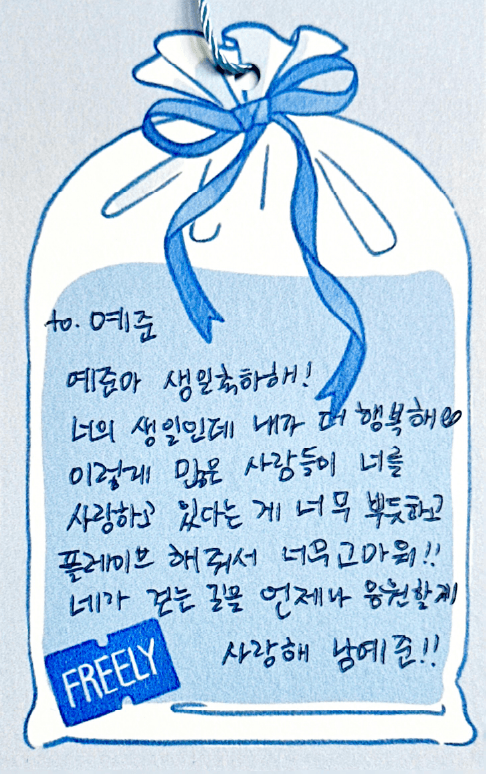 to. 예준
예준아 생일축하해!
너의 생일인데 내가 더 행복해
이렇게 많은 사람들이 너를
사랑하고 있다는 게 너무 뿌듯하고
플레이브 해줘서 너무 고마워!!
네가 걷는 길을 언제나 응원할게
사랑해 남예준!!
FREELY